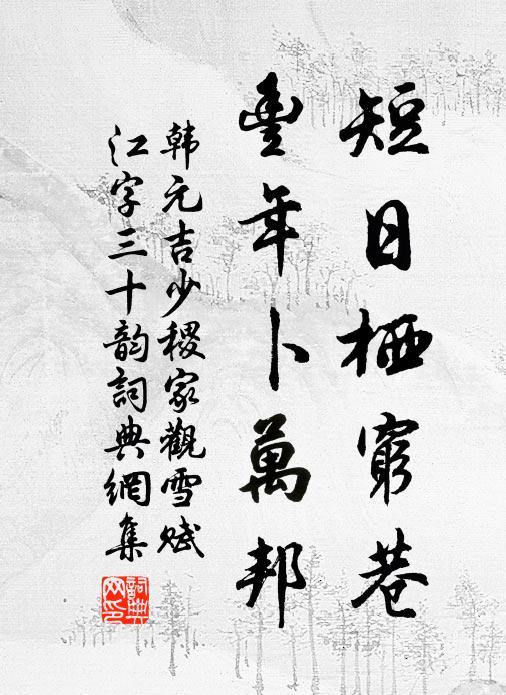 短日栖窮巷
豐年卜萬邦
韩元吉少稷家觀雪赋
江字三十韵詞典網集